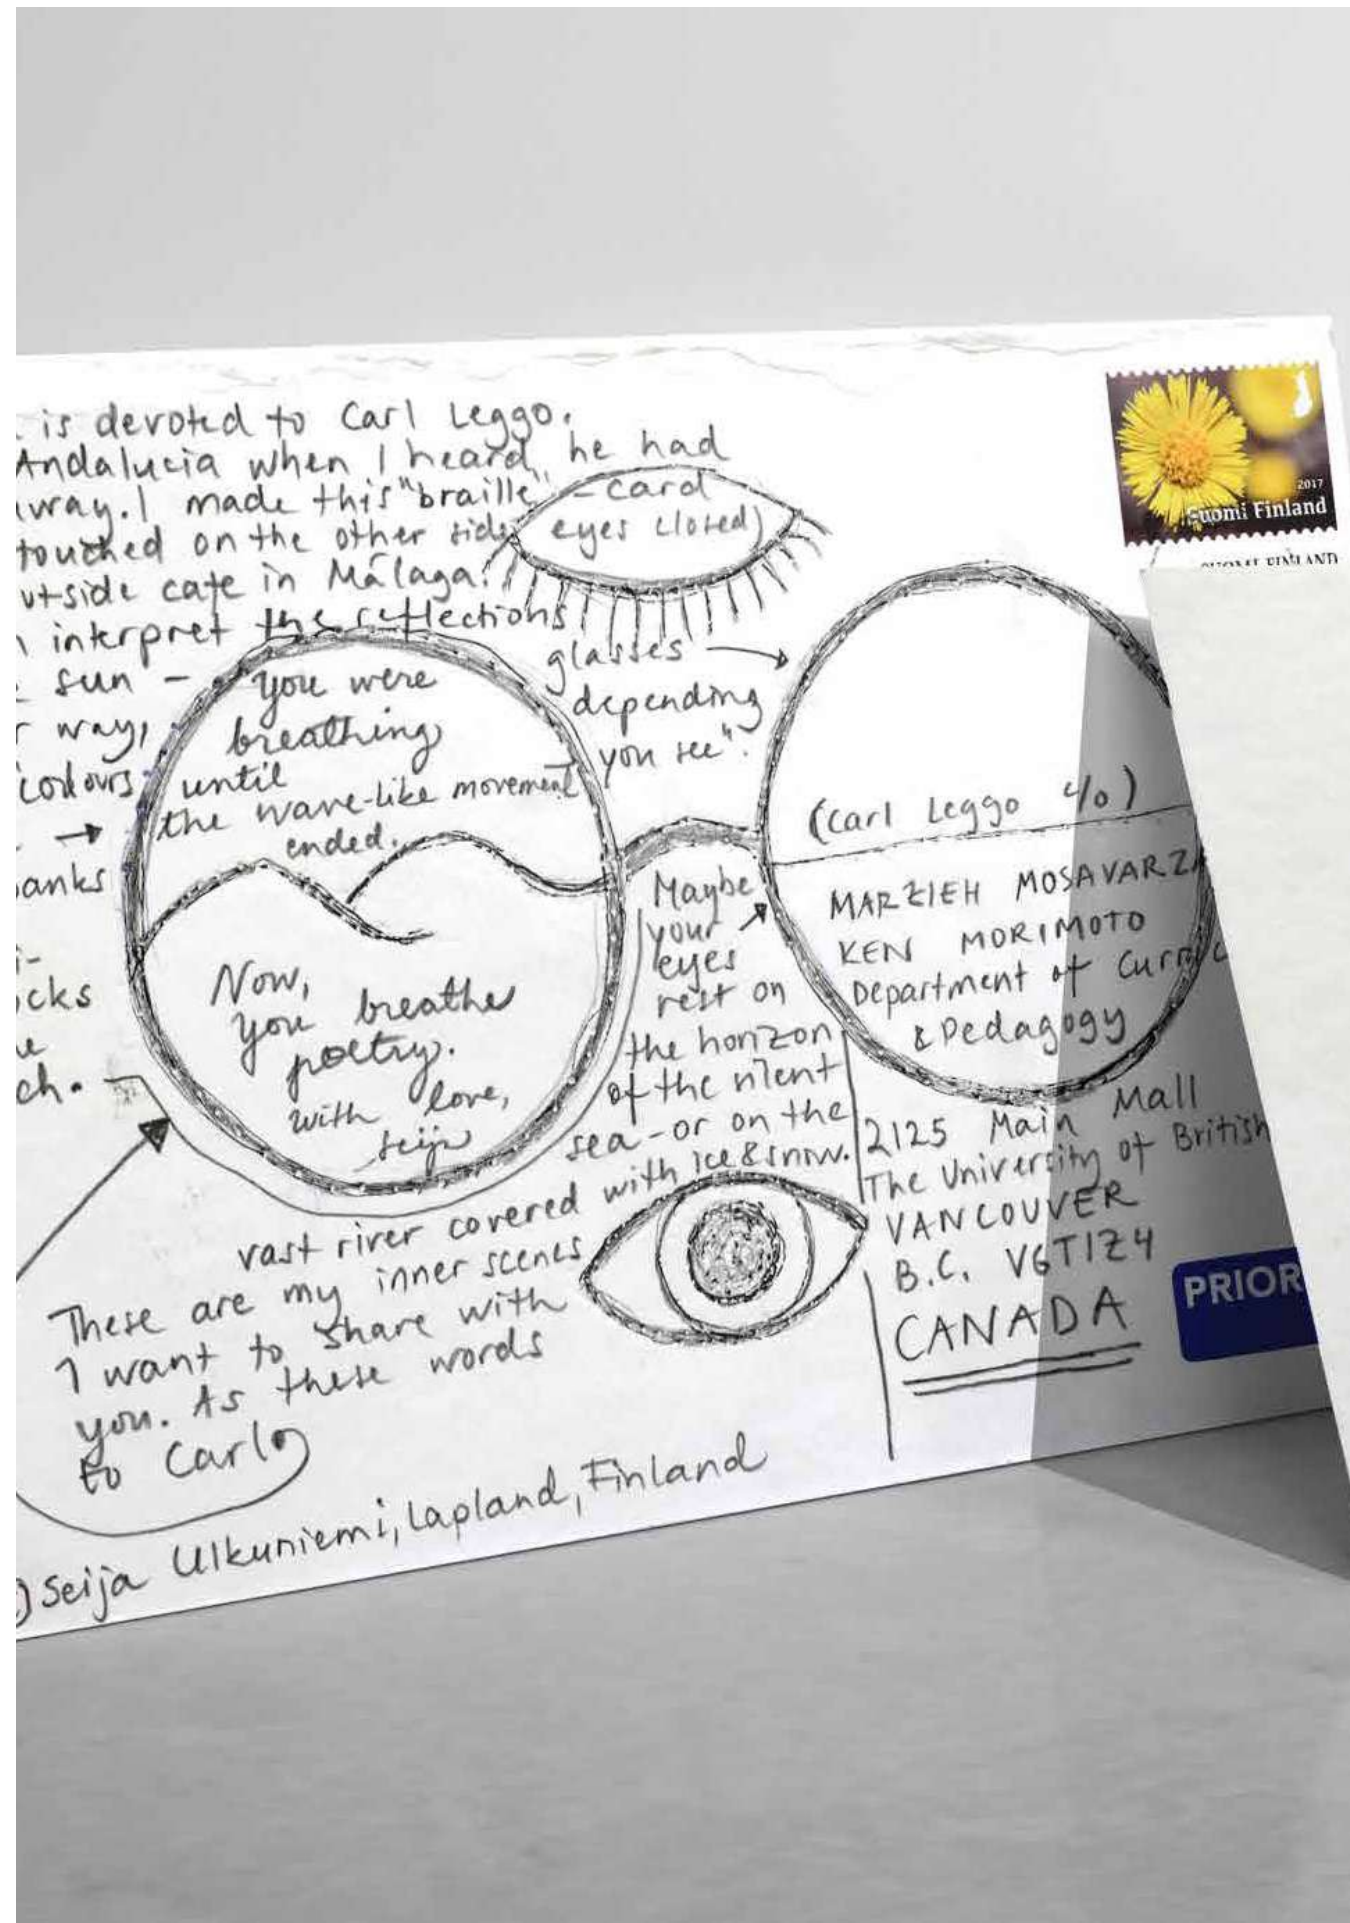 is devoted to Carl Leggo.
Andalucia when I heard, he had
away. I made this "braille" - card
touched on the other side, eyes closed)
utside cafe in Málaga.
interpret the reflections
sun -
way,
colours
→
anks
cks
ch.
You were
breathing
until
the wave-like movement
ended.
Now,
you breathe
poetry.
with love,
Seija
glasses →
depending
you see".
Maybe
your
eyes
rest on
the horizon
of the silent
sea - or on the
vast river covered with ice & snow.
These are my inner scenes
I want to share with
you. As these words
to Carl
Seija Ulkuniemi, Lapland, Finland
2017
Suomi Finland
SUOMI FINLAND
(Carl Leggo c/o)
MARZIEH MOSAVARZA
KEN MORIMOTO
Department of Curric
& Pedagogy
2125 Main Mall
The University of British
VANCOUVER
B.C. V6T1Z4
CANADA
PRIOR